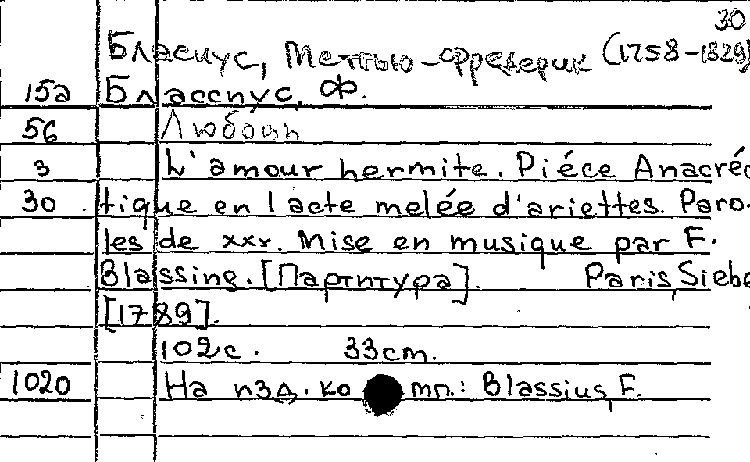 30
Бласиус, Меттью-Фредерик (1758-1829)
15а Блассиус, Ф.
5б Любовь
3 L'amour hermite. Piéce Anacréo
30 tique en 1 acte melée d'ariettes. Paro-
les de xxx. Mise en musique par F.
Blassine. [Партитура]. Paris, Siebe
[1789].
102с. 33cm.
1020 На изд. комп.: Blassius, F.